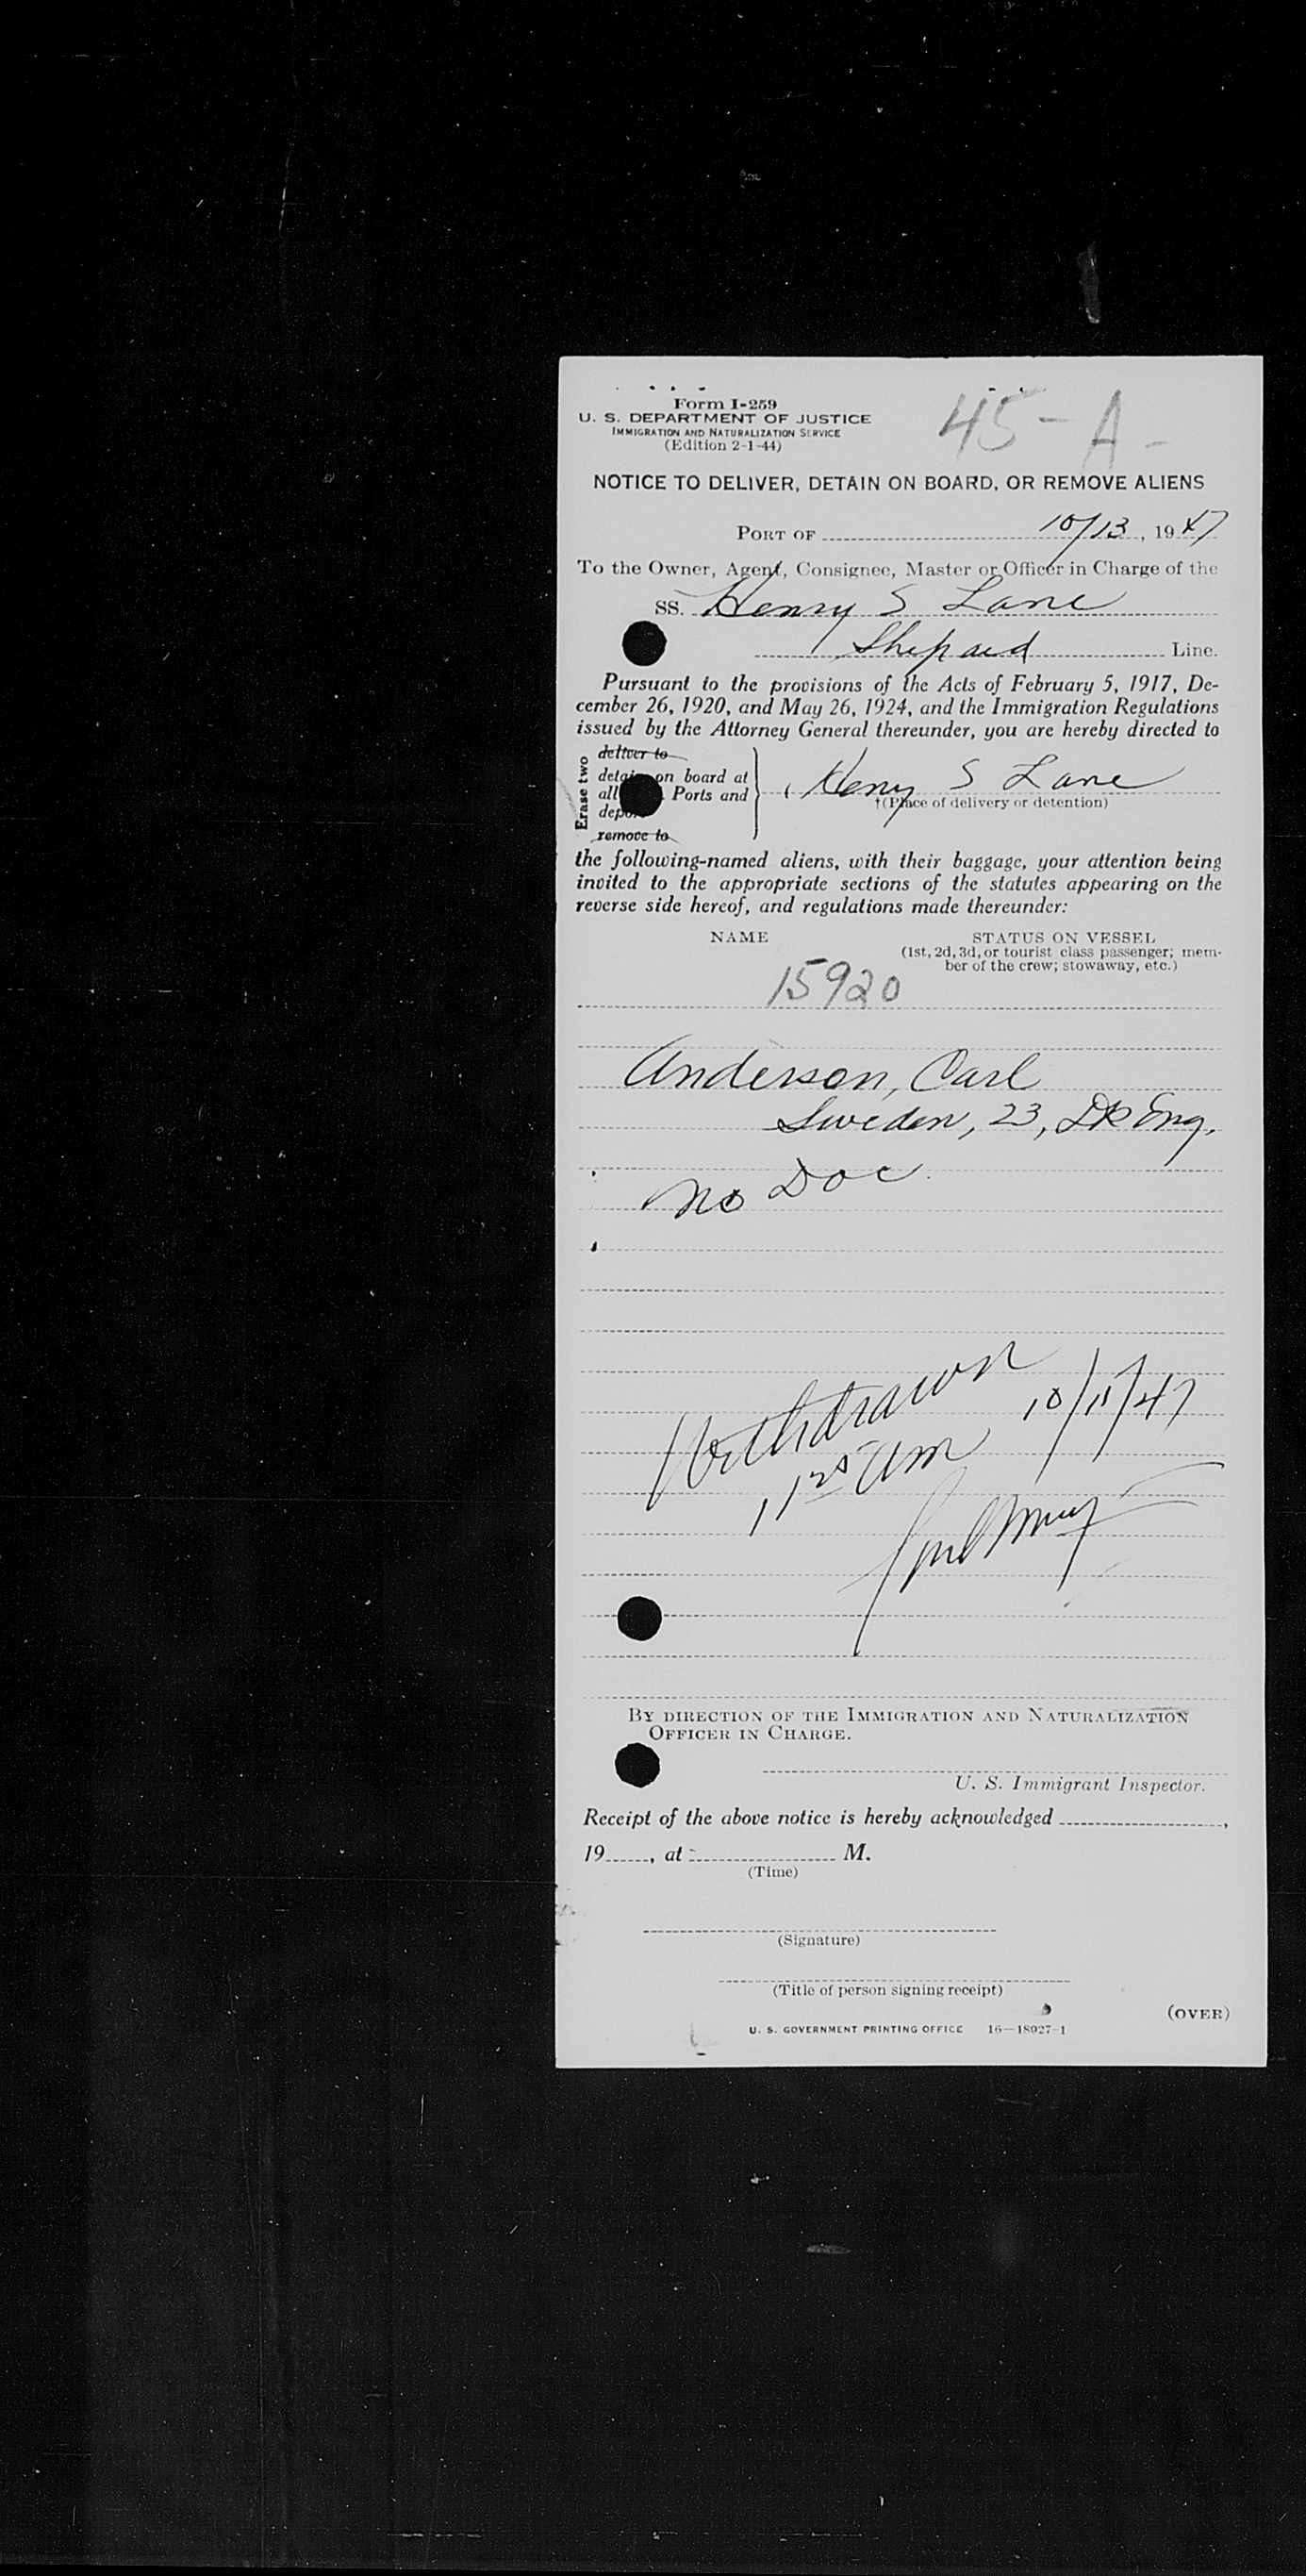 Form I-259
U. S. DEPARTMENT OF JUSTICE
IMMIGRATION AND NATURALIZATION SERVICE
(Edition 2-1-44)
45-A-
NOTICE TO DELIVER, DETAIN ON BOARD, OR REMOVE ALIENS
PORT OF 10/13, 1947
To the Owner, Agent, Consignee, Master or Officer in Charge of the
SS. Henry S Lane
Shepard Line.
Pursuant to the provisions of the Acts of February 5, 1917, De-
cember 26, 1920, and May 26, 1924, and the Immigration Regulations
issued by the Attorney General thereunder, you are hereby directed to
Erase two
deliver to
detain on board at
all Ports and
deport
remove to
Henry S Lane
†(Place of delivery or detention)
the following-named aliens, with their baggage, your attention being
invited to the appropriate sections of the statutes appearing on the
reverse side hereof, and regulations made thereunder:
NAME STATUS ON VESSEL
(1st, 2d, 3d, or tourist class passenger; mem-
ber of the crew; stowaway, etc.)
15920
Anderson, Carl
Sweden, 23, Dk Eng.
No Doc.
Withdrawn 10/11/47
11 25 AM
BY DIRECTION OF THE IMMIGRATION AND NATURALIZATION
OFFICER IN CHARGE.
U. S. Immigrant Inspector.
Receipt of the above notice is hereby acknowledged ,
19 , at M.
(Time)
(Signature)
(Title of person signing receipt)
(OVER)
U. S. GOVERNMENT PRINTING OFFICE 16—18027-1